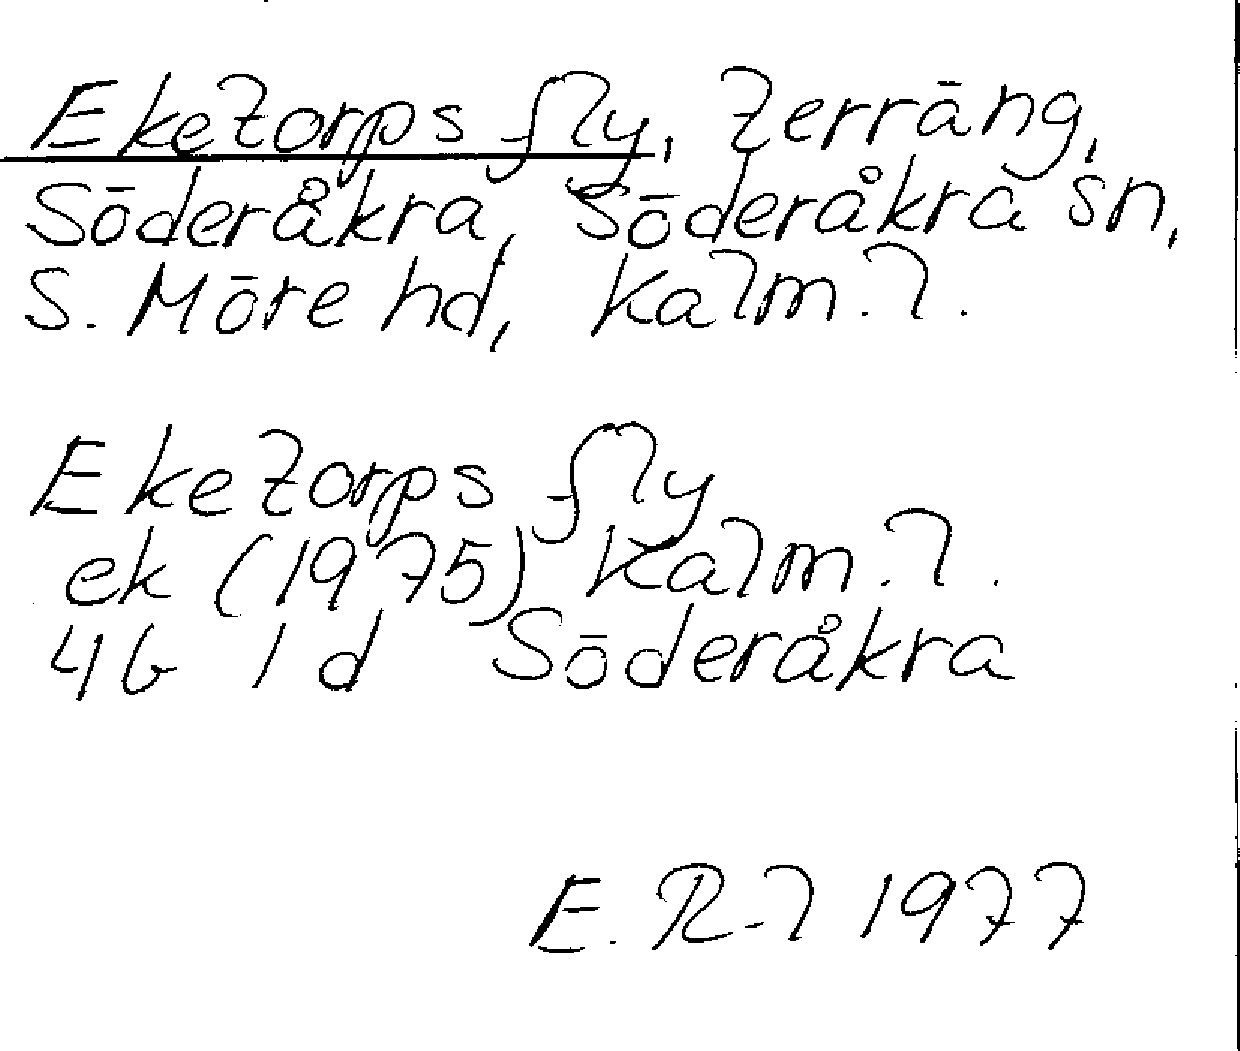 Eketorps fly, terräng,
Söderåkra, Söderåkra sn,
S. Möre hd, Kalm. l.
Eketorps fly
ek (1975) Kalm. l.
4G 1 d Söderåkra
E. R-l 1977